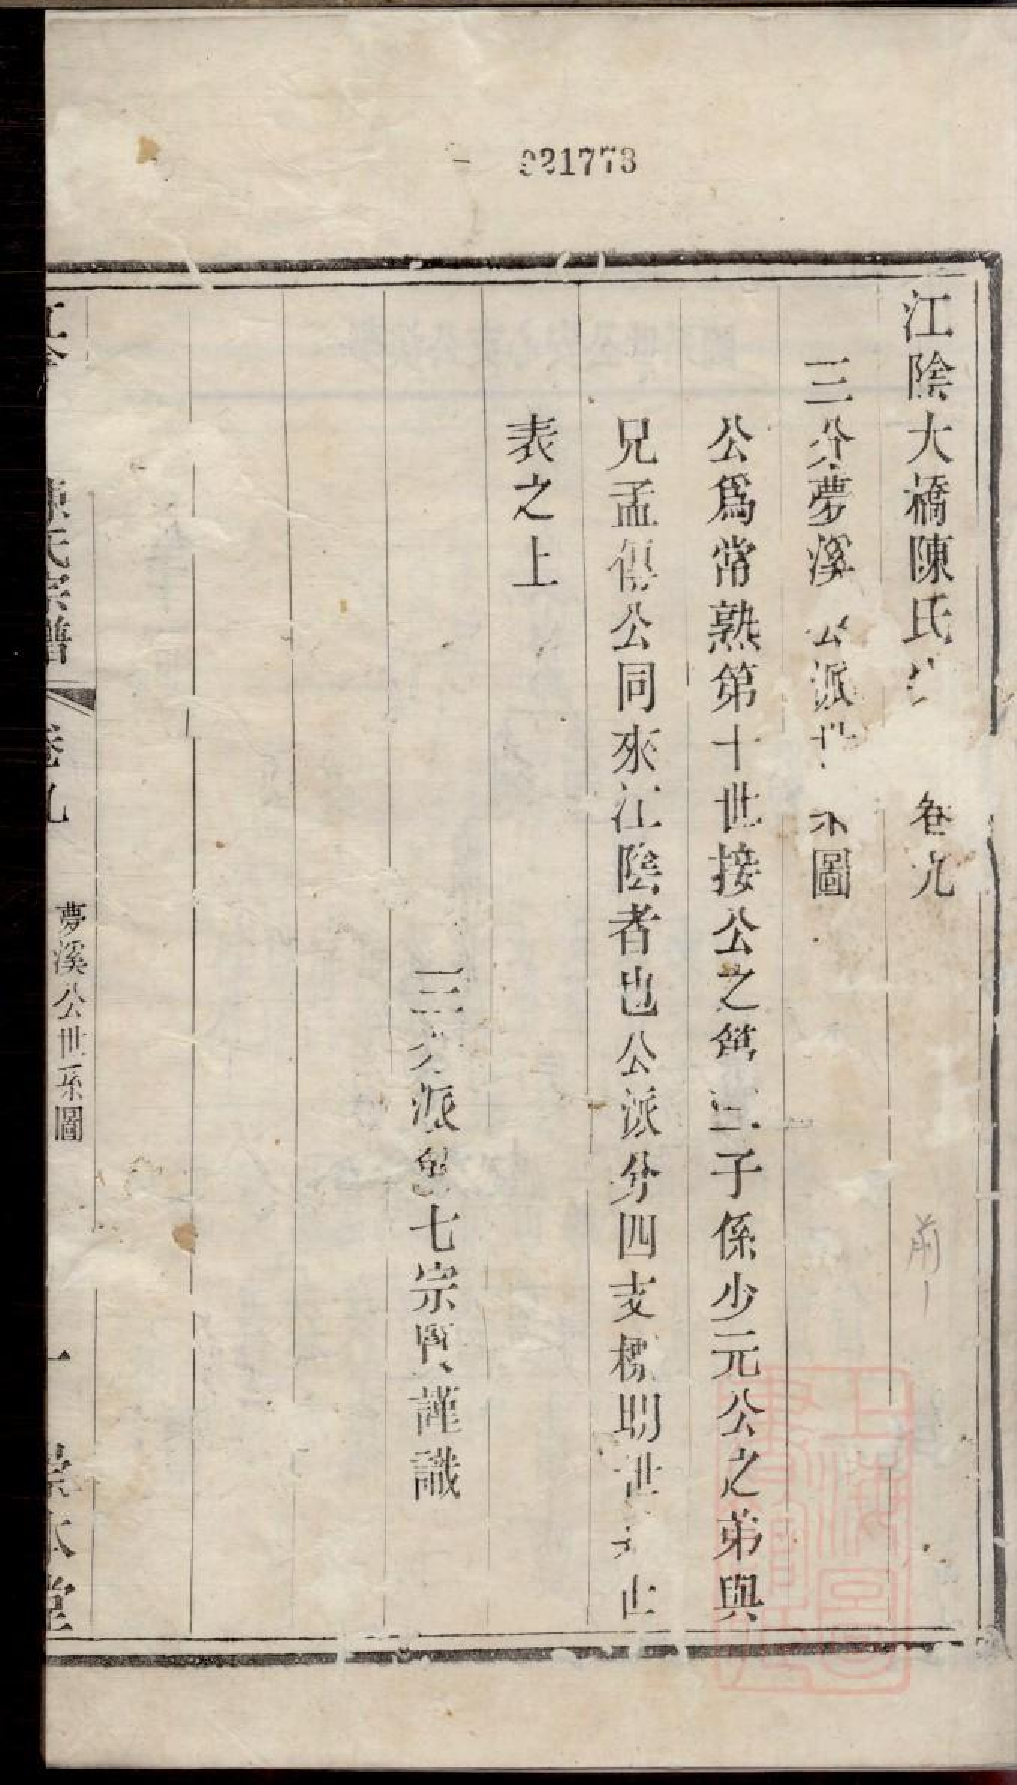 021773
江陰大橋陳氏 卷九
三分夢溪公派世系圖
公爲常熟第十世接公之第三子係少元公之弟與
兄孟傳公同來江陰者也公派分四支標明世系止
表之上
三分派 七宗賢謹識
陳氏宗譜
卷九
夢溪公世系圖
一
本堂